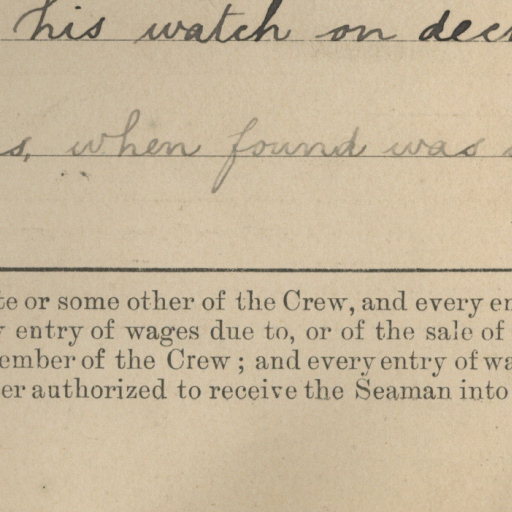 his watch on dec
s, when found was s
te or some other of the Crew, and every en
y entry of wages due to, or of the sale of
ember of the Crew ; and every entry of wa
er authorized to receive the Seaman into